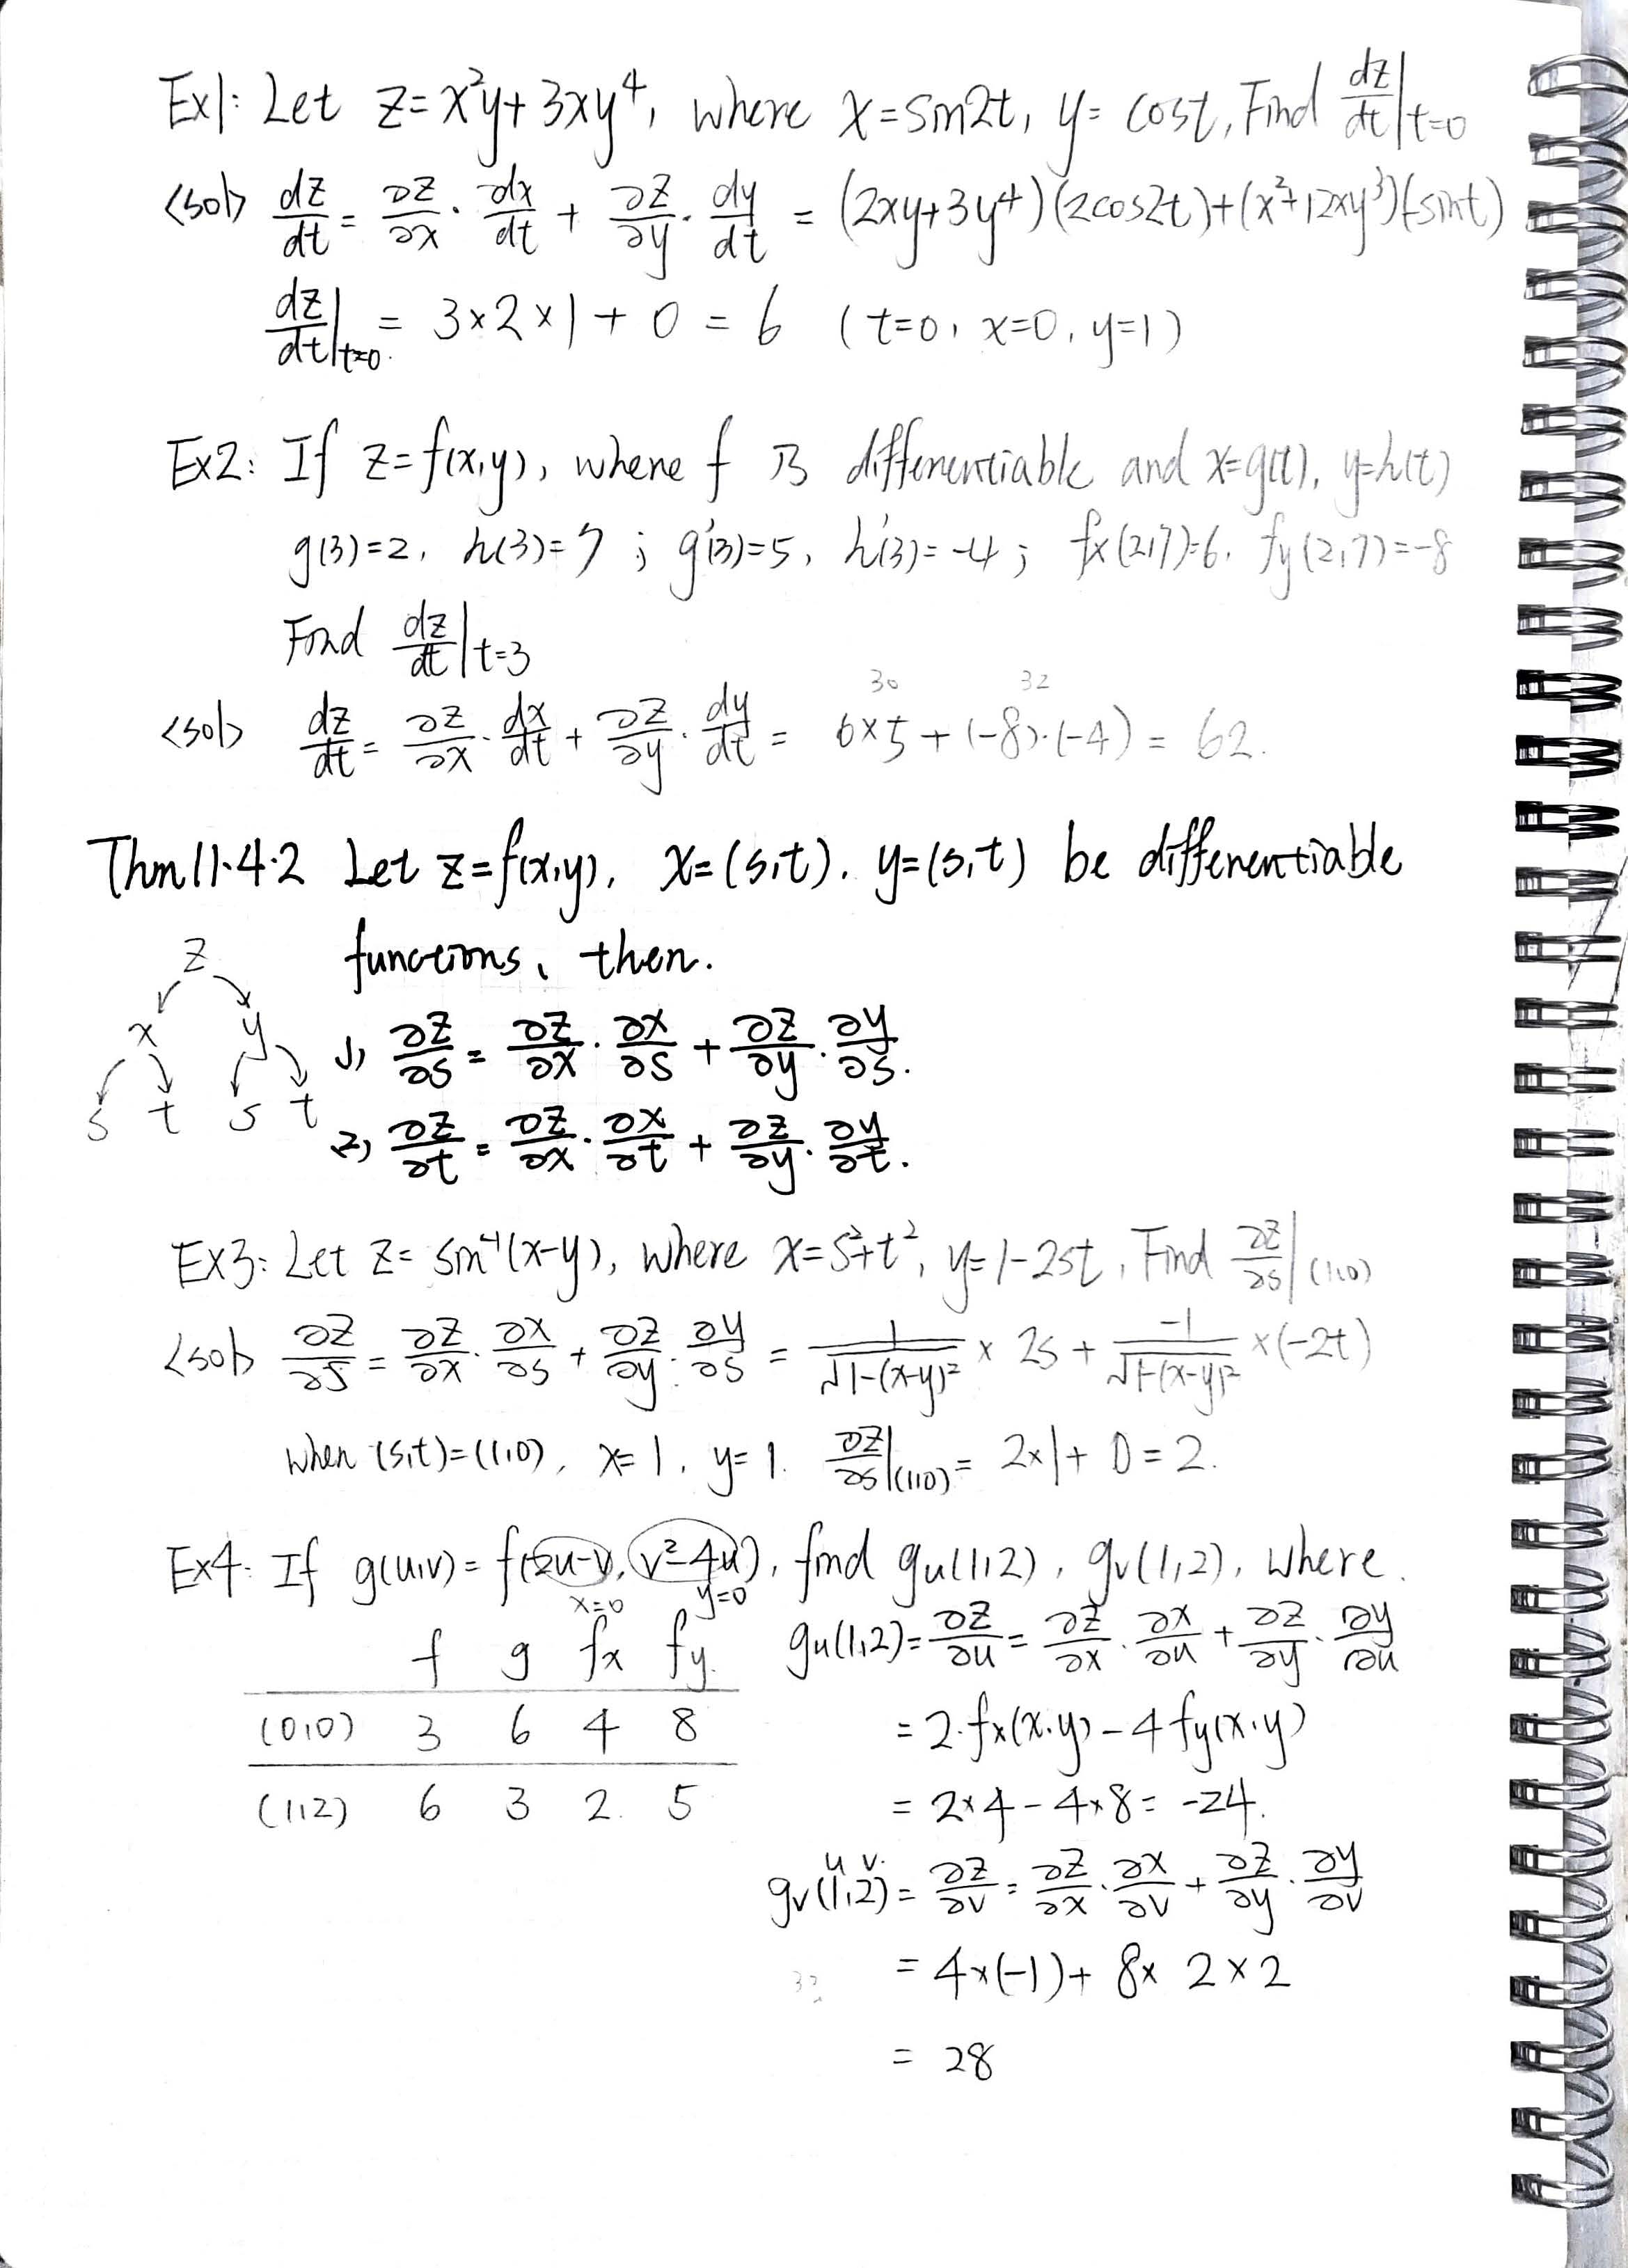 Ex1: Let z=x²y+3xy⁴, where x=sin2t, y=cost, Find dz/dt|t=0
<sol> dz/dt = ∂z/∂x · dx/dt + ∂z/∂y · dy/dt = (2xy+3y⁴)(2cos2t)+(x²+12xy³)(-sint)
dz/dt|t=0. = 3×2×1+0 = 6 (t=0, x=0, y=1)
Ex2: If z=f(x,y), where f is differentiable and x=g(t), y=h(t)
g(3)=2, h(3)=7 ; g'(3)=5, h'(3)=-4 ; fx(2,7)=6, fy(2,7)=-8
Find dz/dt|t=3
30 32
<sol> dz/dt = ∂z/∂x · dx/dt + ∂z/∂y · dy/dt = 6×5+(-8)·(-4) = 62.
Thm11.4.2 Let z=f(x,y), x=(s,t), y=(s,t) be differentiable
functions, then.
z
x y
s t s t
1) ∂z/∂s = ∂z/∂x · ∂x/∂s + ∂z/∂y · ∂y/∂s.
2) ∂z/∂t = ∂z/∂x · ∂x/∂t + ∂z/∂y · ∂y/∂t.
Ex3: Let z=sin⁻¹(x-y), where x=s²+t², y=1-2st, Find ∂z/∂s|(1,0)
<sol> ∂z/∂s = ∂z/∂x · ∂x/∂s + ∂z/∂y · ∂y/∂s = 1/√1-(x-y)² × 2s + -1/√1-(x-y)² ×(-2t)
when (s,t)=(1,0), x=1, y=1. ∂z/∂s|(1,0) = 2×1+0=2.
Ex4: If g(u,v)=f(2u-v, v²-4u), find gu(1,2), gv(1,2), where.
x=0 y=0
f g fx fy.
(0,0) 3 6 4 8
(1,2) 6 3 2. 5
gu(1,2)= ∂z/∂u = ∂z/∂x · ∂x/∂u + ∂z/∂y · ∂y/∂u
= 2·fx(x,y)-4fy(x,y)
= 2×4-4×8= -24.
u v.
gv(1,2)= ∂z/∂v = ∂z/∂x · ∂x/∂v + ∂z/∂y · ∂y/∂v
= 4×(-1)+8×2×2
32
= 28